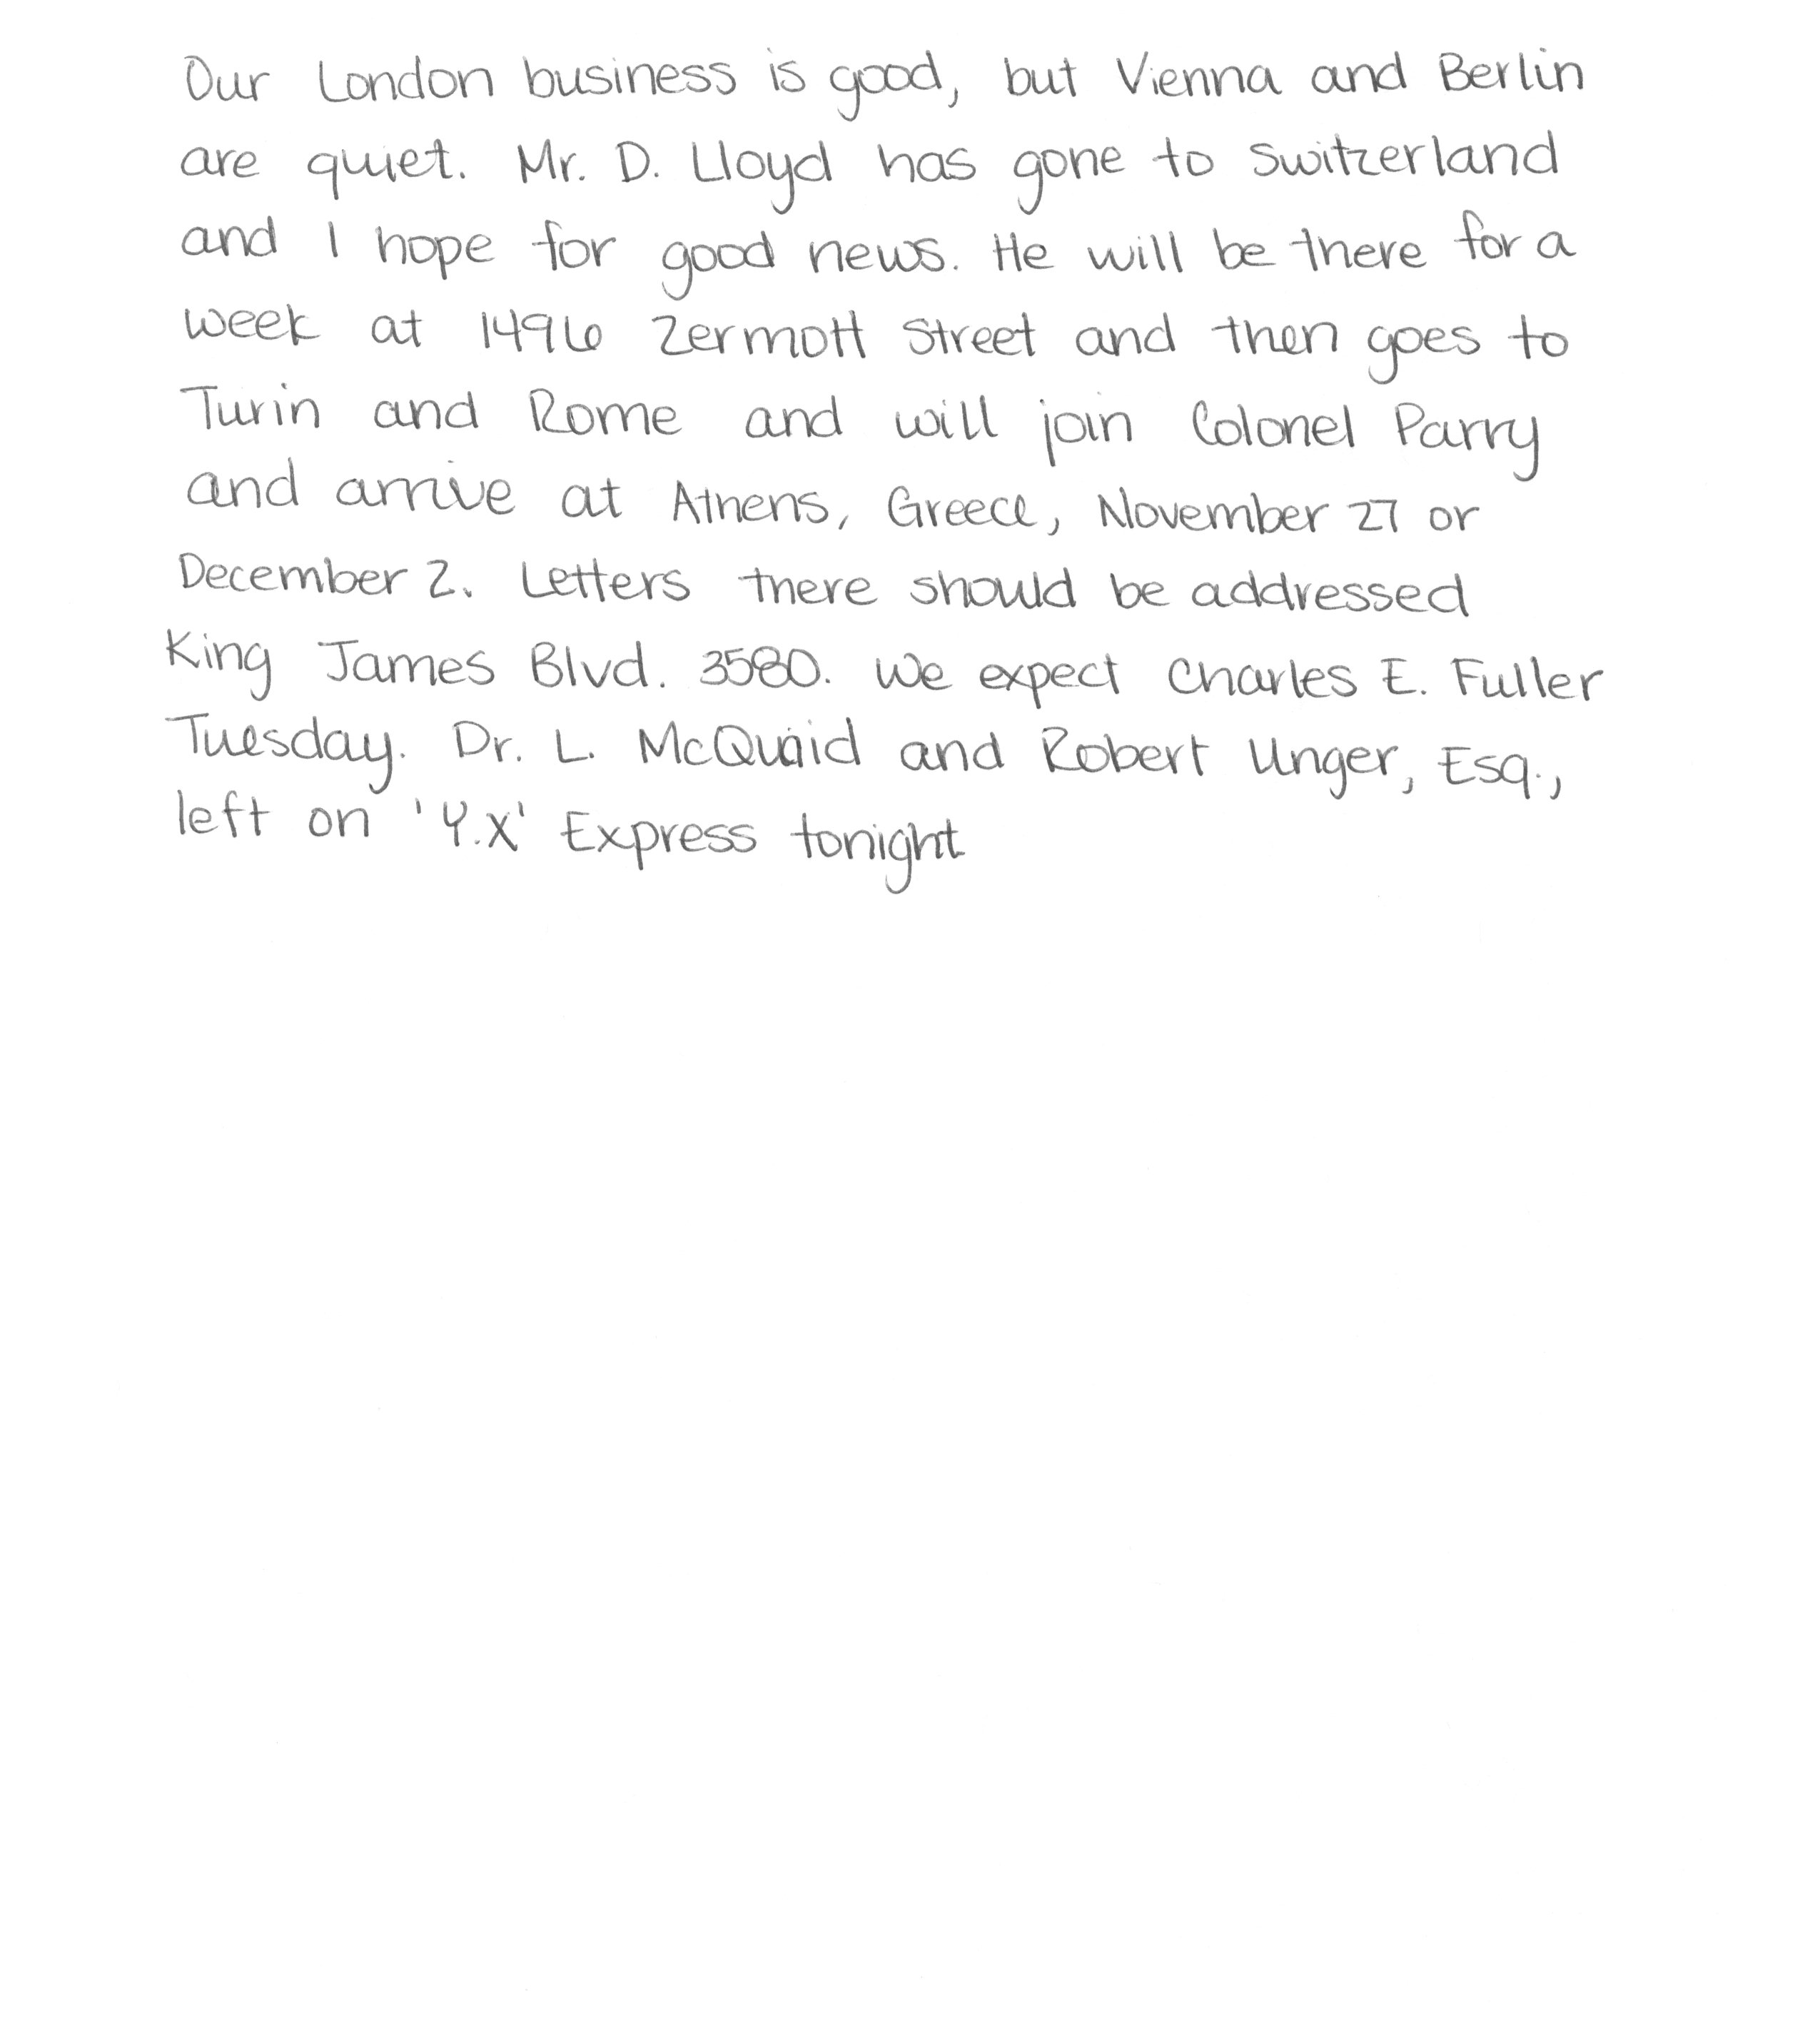 Our London business is good, but Vienna and Berlin
are quiet. Mr. D. Lloyd has gone to Switzerland
and I hope for good news. He will be there for a
week at 1496 Zermott Street and then goes to
Turin and Rome and will join Colonel Parry
and arrive at Athens, Greece, November 27 or
December 2. Letters there should be addressed
King James Blvd. 3580. We expect Charles E. Fuller
Tuesday. Dr. L. McQuaid and Robert Unger, Esq.,
left on 'Y.X' Express tonight